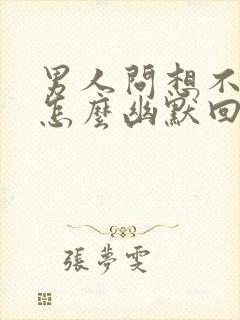 男人問想不
怎麼幽默回
張夢雯